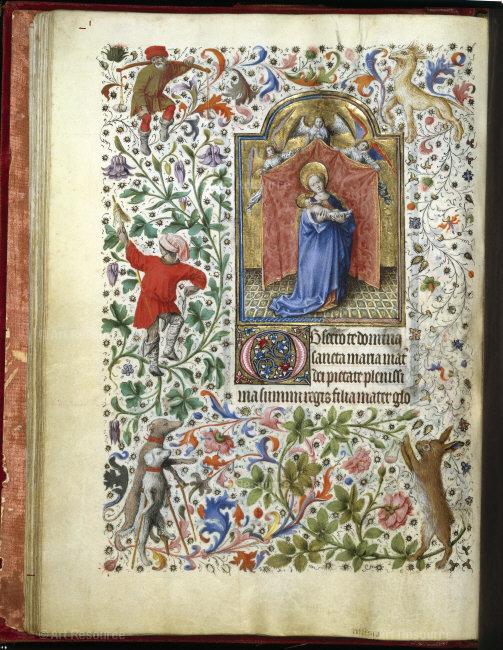 Obsecro te domina
sancta maria mat
dei pietate plenissi
ma summi regis filia mater glo
© Art Resource